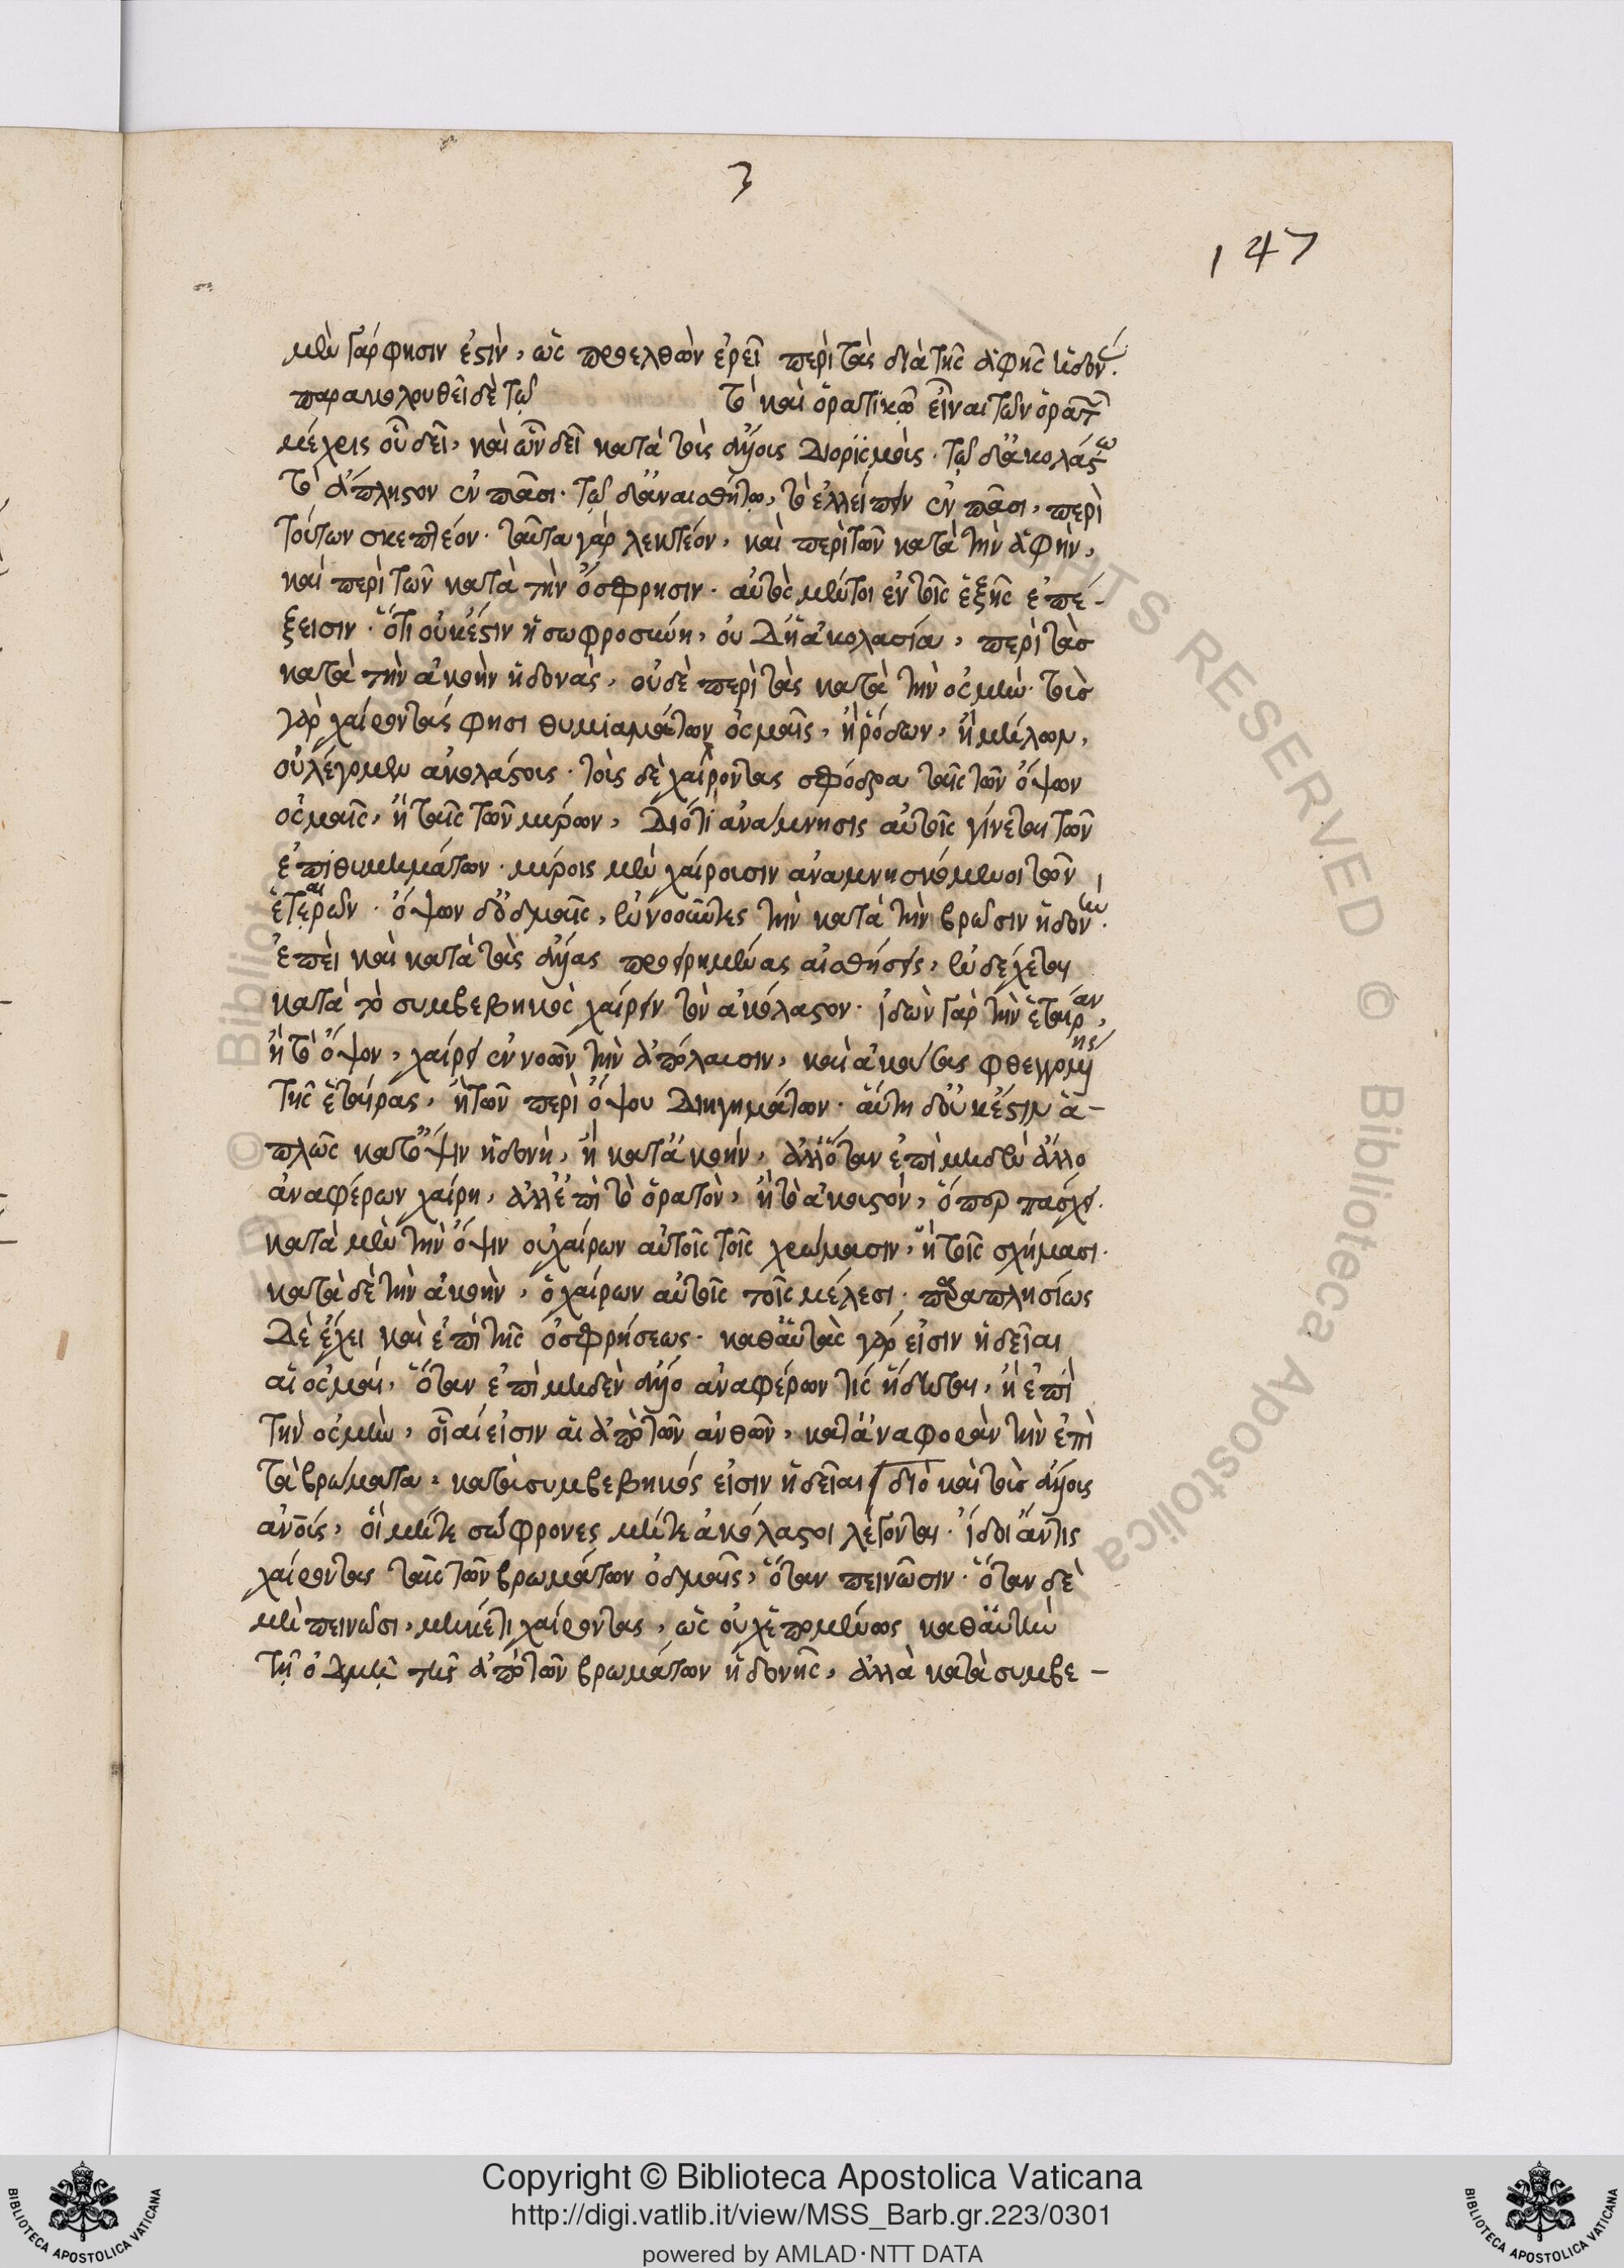 3
147
μὲν γάρ φησιν ἐστὶν, ὡς προελθὼν ἐρεῖ περὶ τὰς διὰ τῆς ἁφῆς ἡδονάς.
παρακολουθεῖ δὲ τῷ τὸ καὶ ὁρατικῷ εἶναι τῶν ὁρατῶν
μέχρις οὗ δεῖ, καὶ ὧν δεῖ κατὰ τοὺς ἄλλους διορισμούς. τῷ δ' ἀκολάστῳ
τὸ ἄπληστον ἐν πᾶσι. τῷ δ' ἀναισθήτῳ, τὸ ἐλλείπειν ἐν πᾶσι, περὶ
τούτων σκεπτέον. ταῦτα γὰρ λεκτέον, καὶ περὶ τῶν κατὰ τὴν ἁφὴν,
καὶ περὶ τῶν κατὰ τὴν ὄσφρησιν. αὐτὸς μέντοι ἐν τοῖς ἑξῆς ἐπέ-
ξεισιν. ὅτι οὐκ ἔστιν ἡ σωφροσύνη, οὐδ' ἡ ἀκολασία, περὶ τὰς
κατὰ τὴν ἀκοὴν ἡδονὰς, οὐδὲ περὶ τὰς κατὰ τὴν ὀσμὴν. τοὺς
γὰρ χαίροντάς φησι θυμιαμάτων ὀσμαῖς, ἢ ῥόδων, ἢ μήλων,
οὐ λέγομεν ἀκολάστους. τοὺς δὲ χαίροντας σφόδρα ταῖς τῶν ὄψων
ὀσμαῖς, ἢ ταῖς τῶν μύρων, διότι ἀνάμνησις αὐτοῖς γίνεται τῶν
ἐπιθυμημάτων. μύροις μὲν χαίρουσιν ἀναμνησκόμενοι τῶν
ἑταιρῶν. ὄψων δ' ὀδμαῖς, ἐννοοῦντες τὴν κατὰ τὴν βρῶσιν ἡδονὴν.
ἐπεὶ καὶ κατὰ τὰς ἄλλας προειρημένας αἰσθήσεις, ἐνδέχεται
κατὰ τὸ συμβεβηκὸς χαίρειν τὸν ἀκόλαστον. ἰδὼν γὰρ τὴν ἑταίραν,
ἢ τὸ ὄψον, χαίρει ἐννοῶν τὴν ἀπόλαυσιν, καὶ ἀκούσας φθεγγομένης
τῆς ἑταίρας, ἢ τῶν περὶ ὄψου διηγημάτων. αὕτη δ' οὐκ ἔστιν ἁ-
πλῶς κατ' ὄψιν ἡδονὴ, ἢ κατ' ἀκοήν, ἀλλ' ὅταν ἐπὶ μηδὲν ἄλλο
ἀναφέρων χαίρῃ, ἀλλ' ἐπὶ τὸ ὁρατὸν, ἢ τὸ ἀκουστόν, ὅπερ πάσχει.
κατὰ μὲν τὴν ὄψιν ὁ χαίρων αὐτοῖς τοῖς χρώμασιν, ἢ τοῖς σχήμασι.
κατὰ δὲ τὴν ἀκοὴν, ὁ χαίρων αὐτοῖς τοῖς μέλεσι. παραπλησίως
δὲ ἔχει καὶ ἐπὶ τῆς ὀσφρήσεως. καθ' αὑτὰς γάρ εἰσιν ἡδεῖαι
αἱ ὀσμαί, ὅταν ἐπὶ μηδὲν ἄλλο ἀναφέρων τὶς ἥδηται, ἢ ἐπὶ
τὴν ὀσμὴν, οἷαί εἰσιν αἱ ἀπὸ τῶν ἀνθῶν, κατὰ ἀναφορὰν τὴν ἐπὶ
τὰ βρώματα. κατὰ συμβεβηκός εἰσιν ἡδεῖαι διὸ καὶ τοὺς ἄλλους
ἀνους, οἳ μήτε σώφρονες μήτε ἀκόλαστοι λέγονται. ἴδοι ἄν τις
χαίροντας ταῖς τῶν βρωμάτων ὀδμαῖς, ὅταν πεινῶσιν. ὅταν δὲ
μὴ πεινῶσι, μηκέτι χαίροντας, ὡς οὐχ ἑπομένως καθ' αὑτὴν
τῇ ὀδμῇ τῆς ἀπὸ τῶν βρωμάτων ἡδονῆς, ἀλλὰ κατὰ συμβε-
Copyright © Biblioteca Apostolica Vaticana
http://digi.vatlib.it/view/MSS_Barb.gr.223/0301
powered by AMLAD·NTT DATA